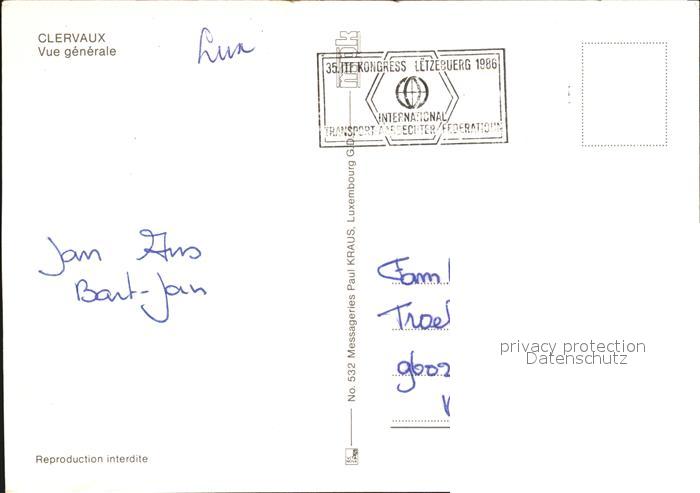 CLERVAUX
Vue générale
Lux
35. ITF KONGRESS LËTZEBUERG 1986
INTERNATIONAL
TRANSPORT AARBECHTER FEDERATIOUN
Jan Ans
Bart-Jan
No. 532 Messageries Paul KRAUS, Luxembourg
Fam
privacy protection
Datenschutz
Reproduction interdite